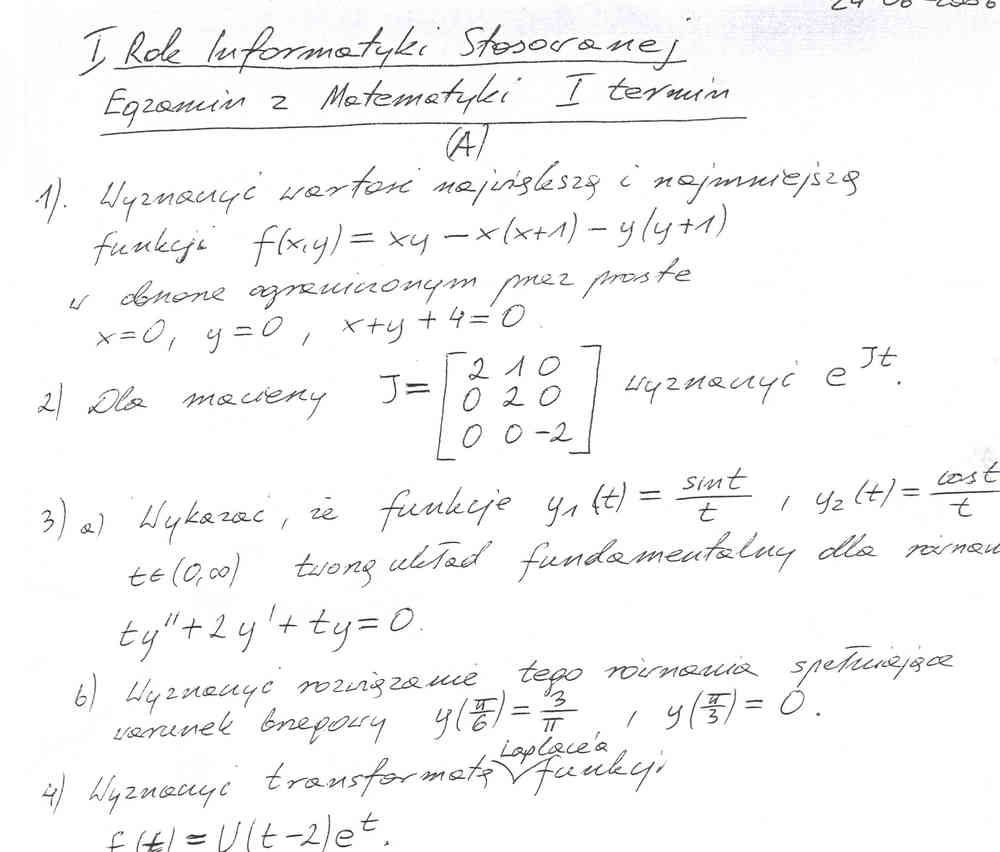 24-06-2006
I Rok Informatyki Stosowanej
Egzamin z Matematyki I termin
(A)
1). Wyznaczyć wartość największą i najmniejszą
funkcji f(x,y) = xy - x(x+1) - y(y+1)
w obszarze ograniczonym przez proste
x=0, y=0, x+y+4=0
2) Dla macierzy J= [2 1 0 0 2 0 0 0 -2] wyznaczyć e^Jt.
3) a) Wykazać, że funkcje y₁(t) = sint/t, y₂(t) = cost/t
t∈(0,∞) tworzą układ fundamentalny dla równan
ty''+2y'+ty=0.
b) Wyznaczyć rozwiązanie tego równania spełniające
warunek brzegowy y(π/6) = 3/π, y(π/3) = 0.
4) Wyznaczyć transformatę Laplace'a funkcji
f(t) = U(t-2)e^t.